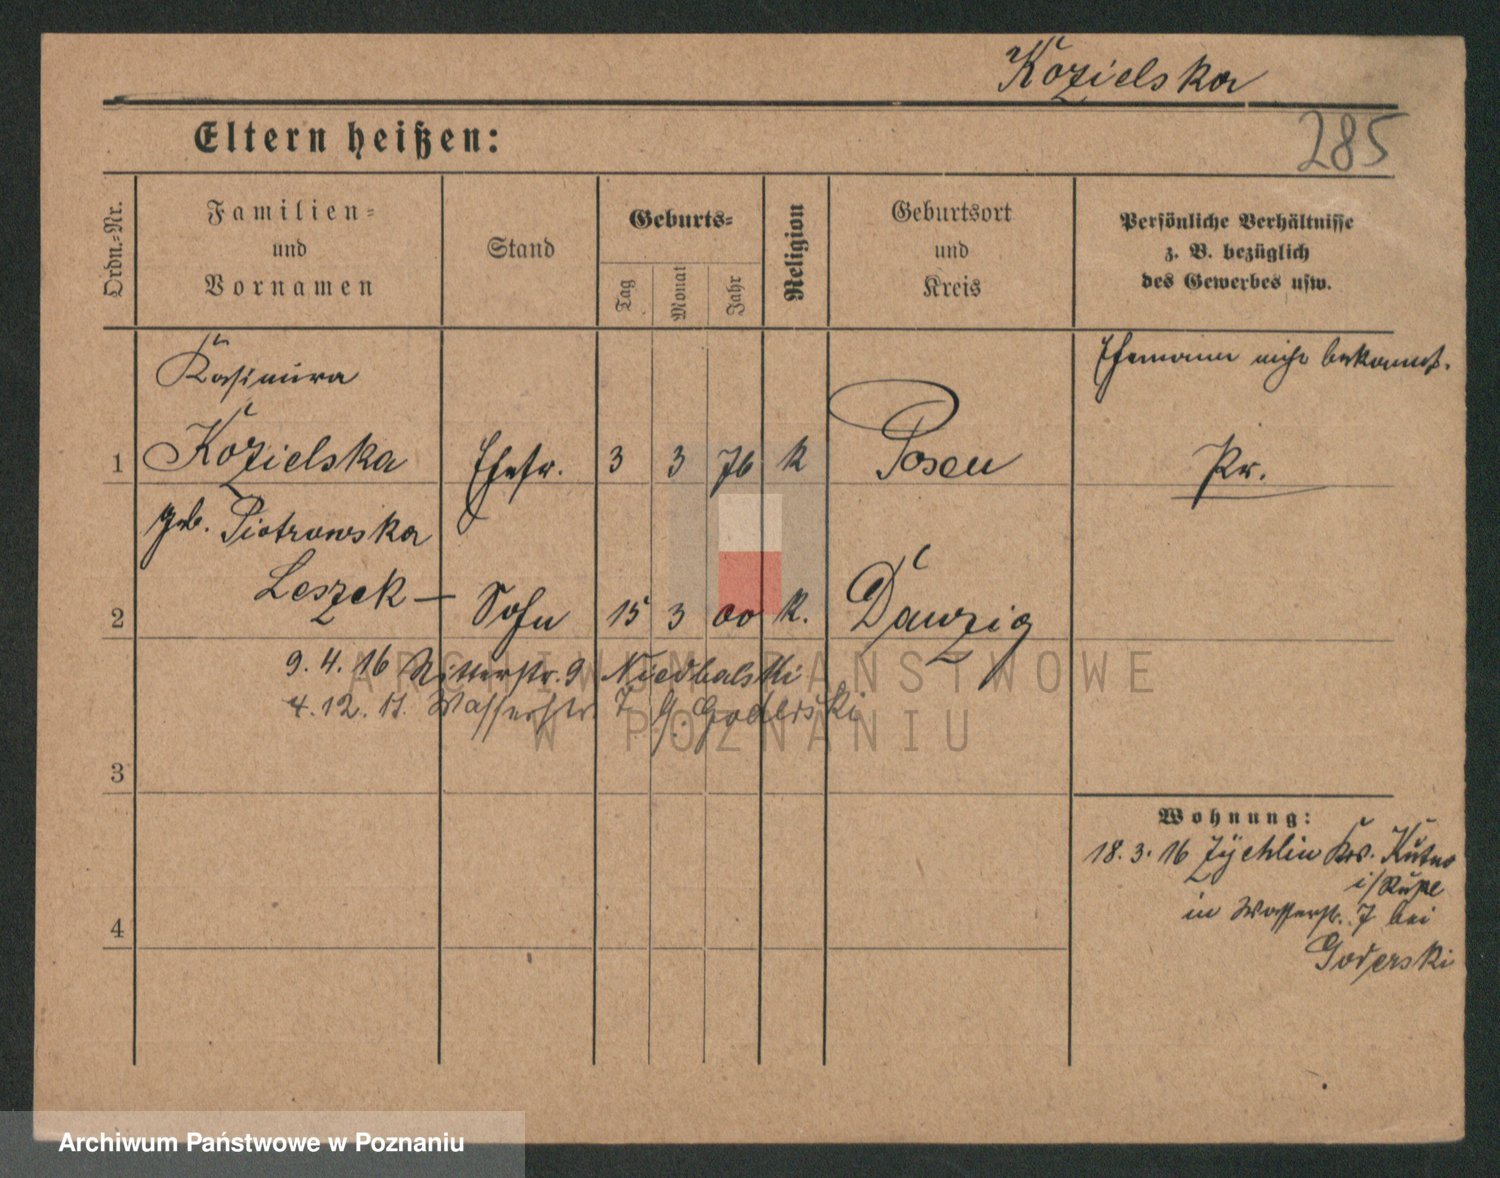 Kozielska
285
Eltern heißen:
Ordn.-Nr.
Familien-
und
Vornamen
Stand
Geburts-
Tag
Monat
Jahr
Religion
Geburtsort
und
Kreis
Persönliche Verhältnisse
z. B. bezüglich
des Gewerbes usw.
Kasimira
Ehemann nicht bekannt.
1 Kozielska Ehefr. 3 3 76 k Posen Pr.
geb. Piotrowska
Leszek —
2 Sohn 15 3 00 k. Danzig
9. 4. 16 Ritterstr. 9 Niedbalski
4. 12. 17. Wasserstr. 7 b. Goderski
3
Wohnung:
18. 3. 16 Zychlin Krs. Kutno
i/Rußl
in Wasserstr. 7 bei
Goderski
4
ARCHIWUM PAŃSTWOWE
W POZNANIU
Archiwum Państwowe w Poznaniu